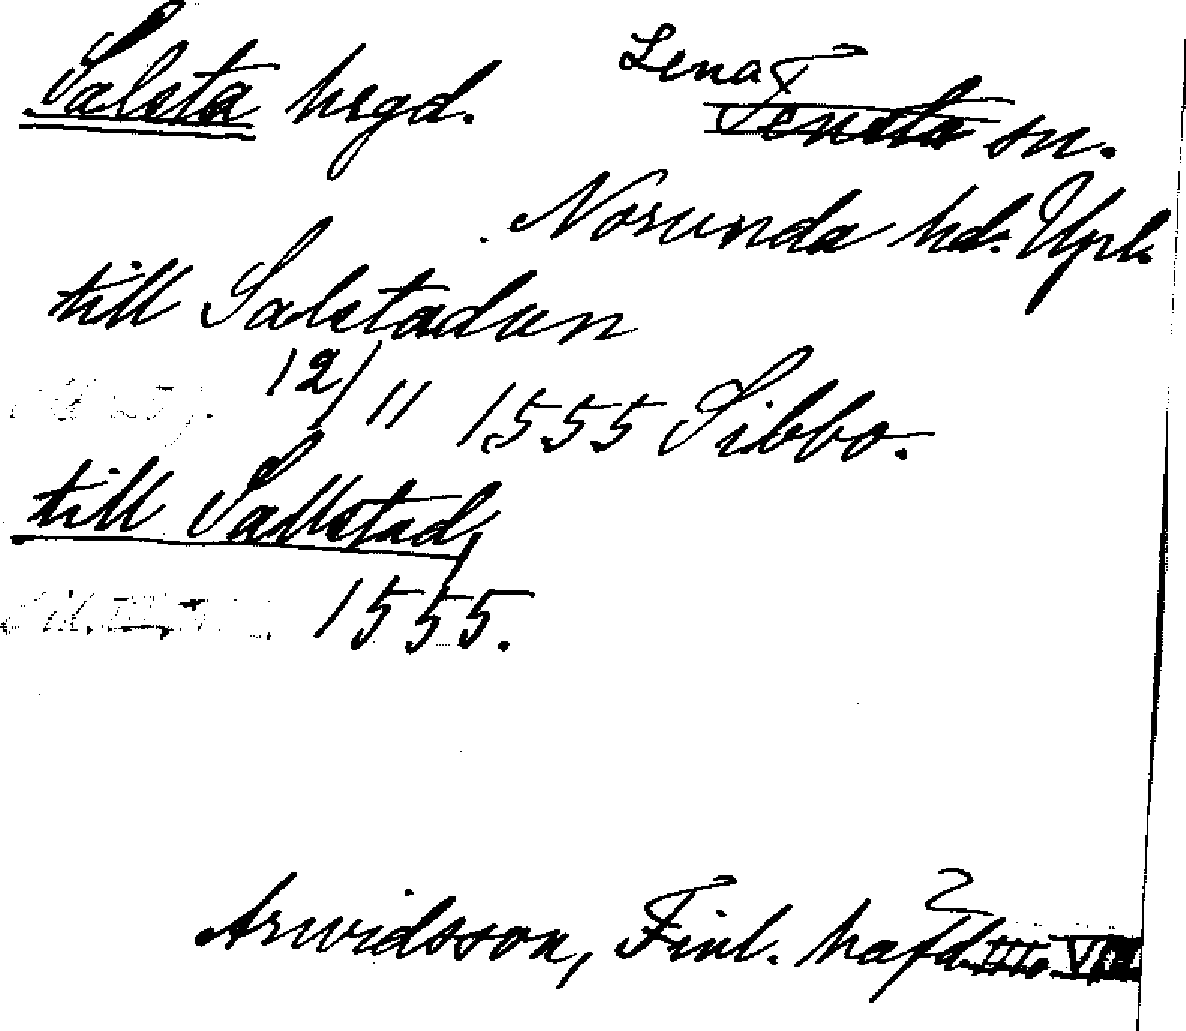 Salsta hrgd. Lena
Tensta sn.
Norunda hd. Upl.
till Salstadun
12/11 1555 Sibbo.
till Sallstad
1555.
Arwidsson, Finl. hafd. III o. VII